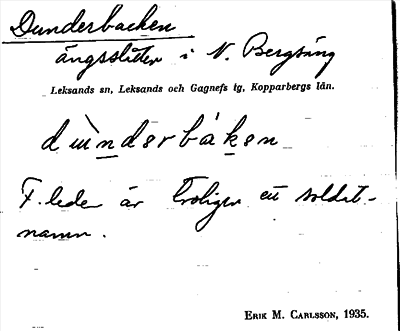 Dunderbacken
ängsslåtter i N. Bergsäng
Leksands sn, Leksands och Gagnefs tg, Kopparbergs län.
dùndərbákən
F. leden är troligen ett soldat-
namn.
ERIK M. CARLSSON, 1935.